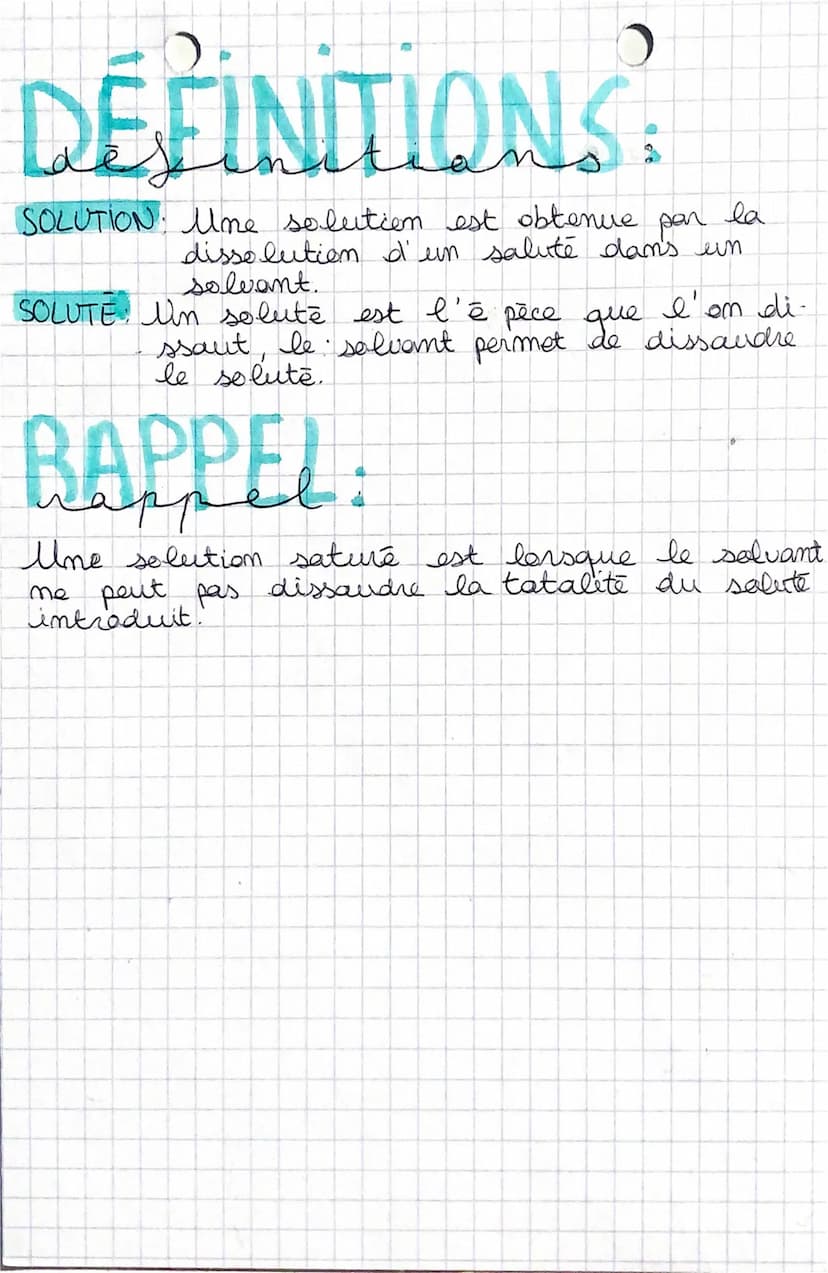 DÉFINITIONS:
définitions:
SOLUTION: Une solution est obtenue par la
dissolution d'un soluté dans un
solvant.
SOLUTÉ: Un soluté est l'é pèce que l'on di-
ssout, le solvant permet de dissoudre
le soluté.
RAPPEL:
rappel
Une solution saturé est lorsque le solvant
ne peut pas dissoudre la totalité du soluté
introduit.